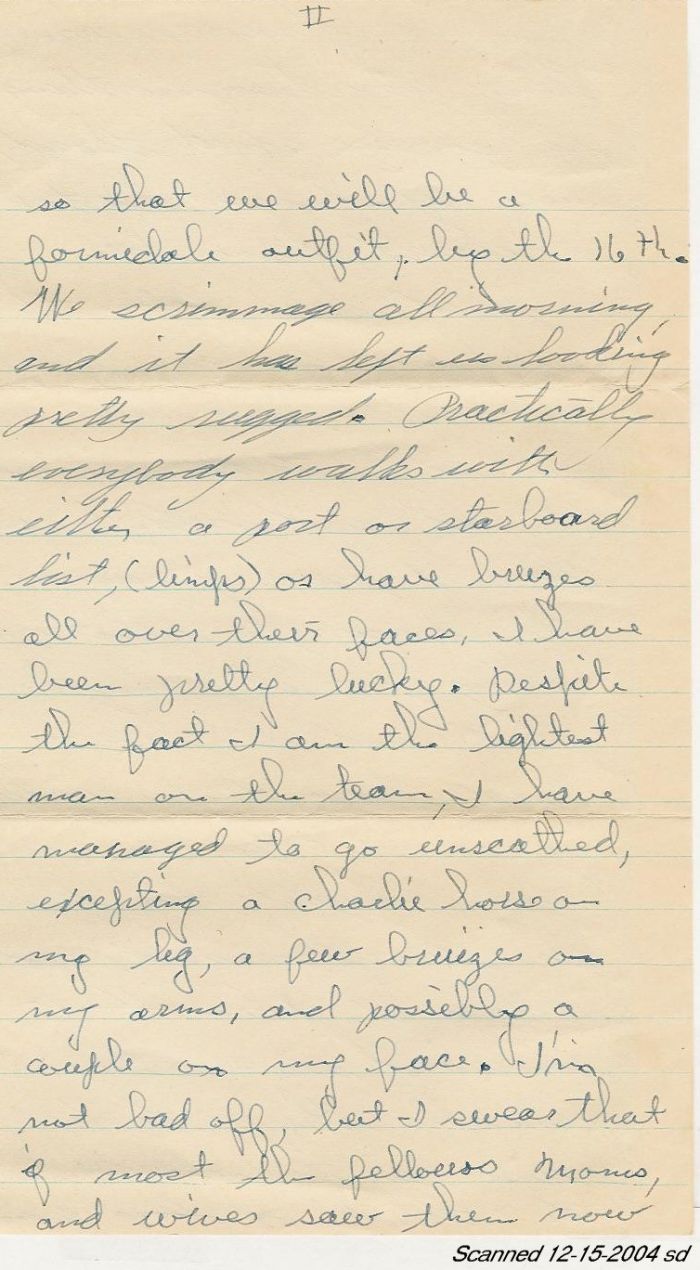 II
so that we will be a
formidale outfit, by the 16th.
We scrimmage all morning,
and it has left us looking
pretty rugged. Practically
everybody walks with
either a port or starboard
list, (limps) or have bruizes
all over their faces, I have
been pretty lucky. Despite
the fact I am the lightest
man on the team, I have
managed to go unscathed,
excepting a charlie horse on
my leg, a few bruizes on
my arms, and possibly a
couple on my face. I'm
not bad off, but I swear that
if most the fellows moms,
and wives saw them now
Scanned 12-15-2004 sd